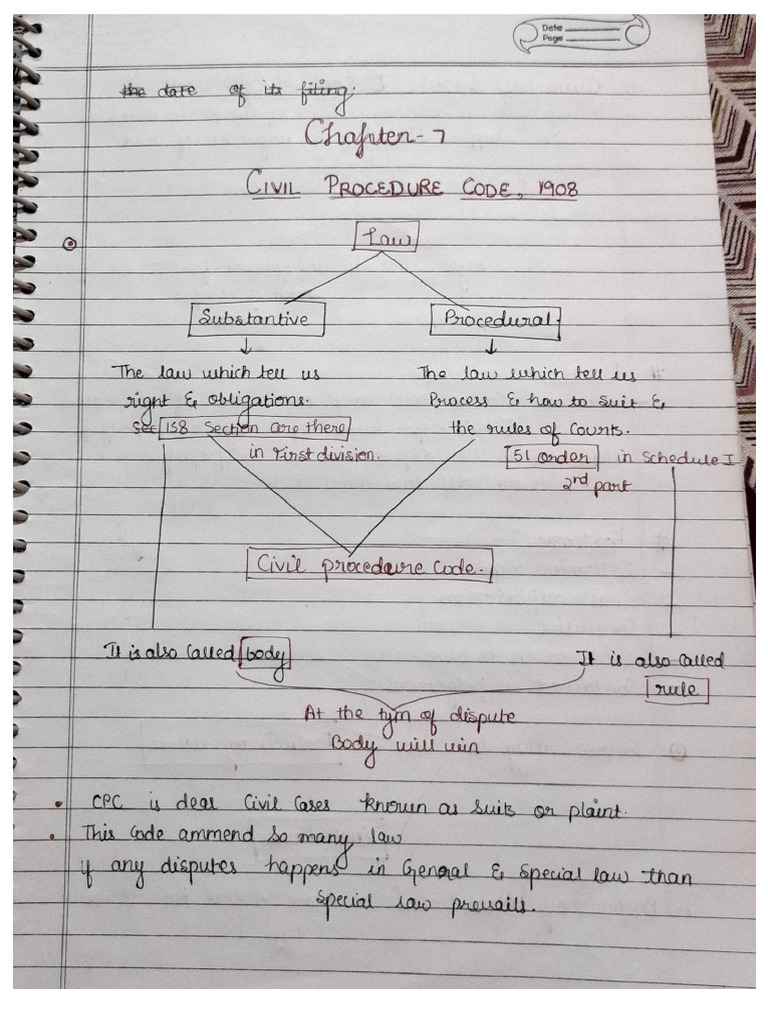 Date
Page
the date of its filing.
Chapter-7
CIVIL PROCEDURE CODE, 1908
Law
Substantive
Procedural
The law which tell us
right & obligations.
Sec 158 Section are there
in First division.
The law which tell us
Process & how to suit &
the rules of Courts.
51 order in Schedule I
2nd part
Civil procedure Code.
It is also Called body
It is also Called
rule
At the tym of dispute
Body will win
CPC is deal Civil Cases known as suits or plaint.
This Code ammend so many law
if any disputes happens in General & Special law than
Special law prevails.